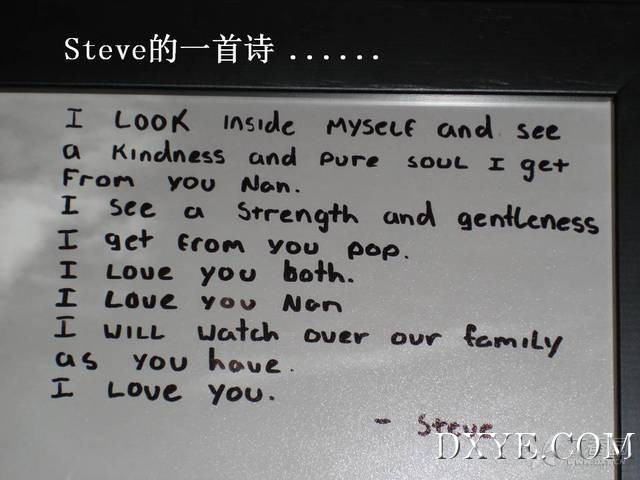 Steve的一首诗 ......
I LOOK inside MYSELF and see
a Kindness and pure soul I get
From you Nan.
I see a strength and gentleness
I get from you pop.
I Love you both.
I Love you Nan
I WILL watch over our family
as you have.
I Love you.
- Steve
DXYE.COM